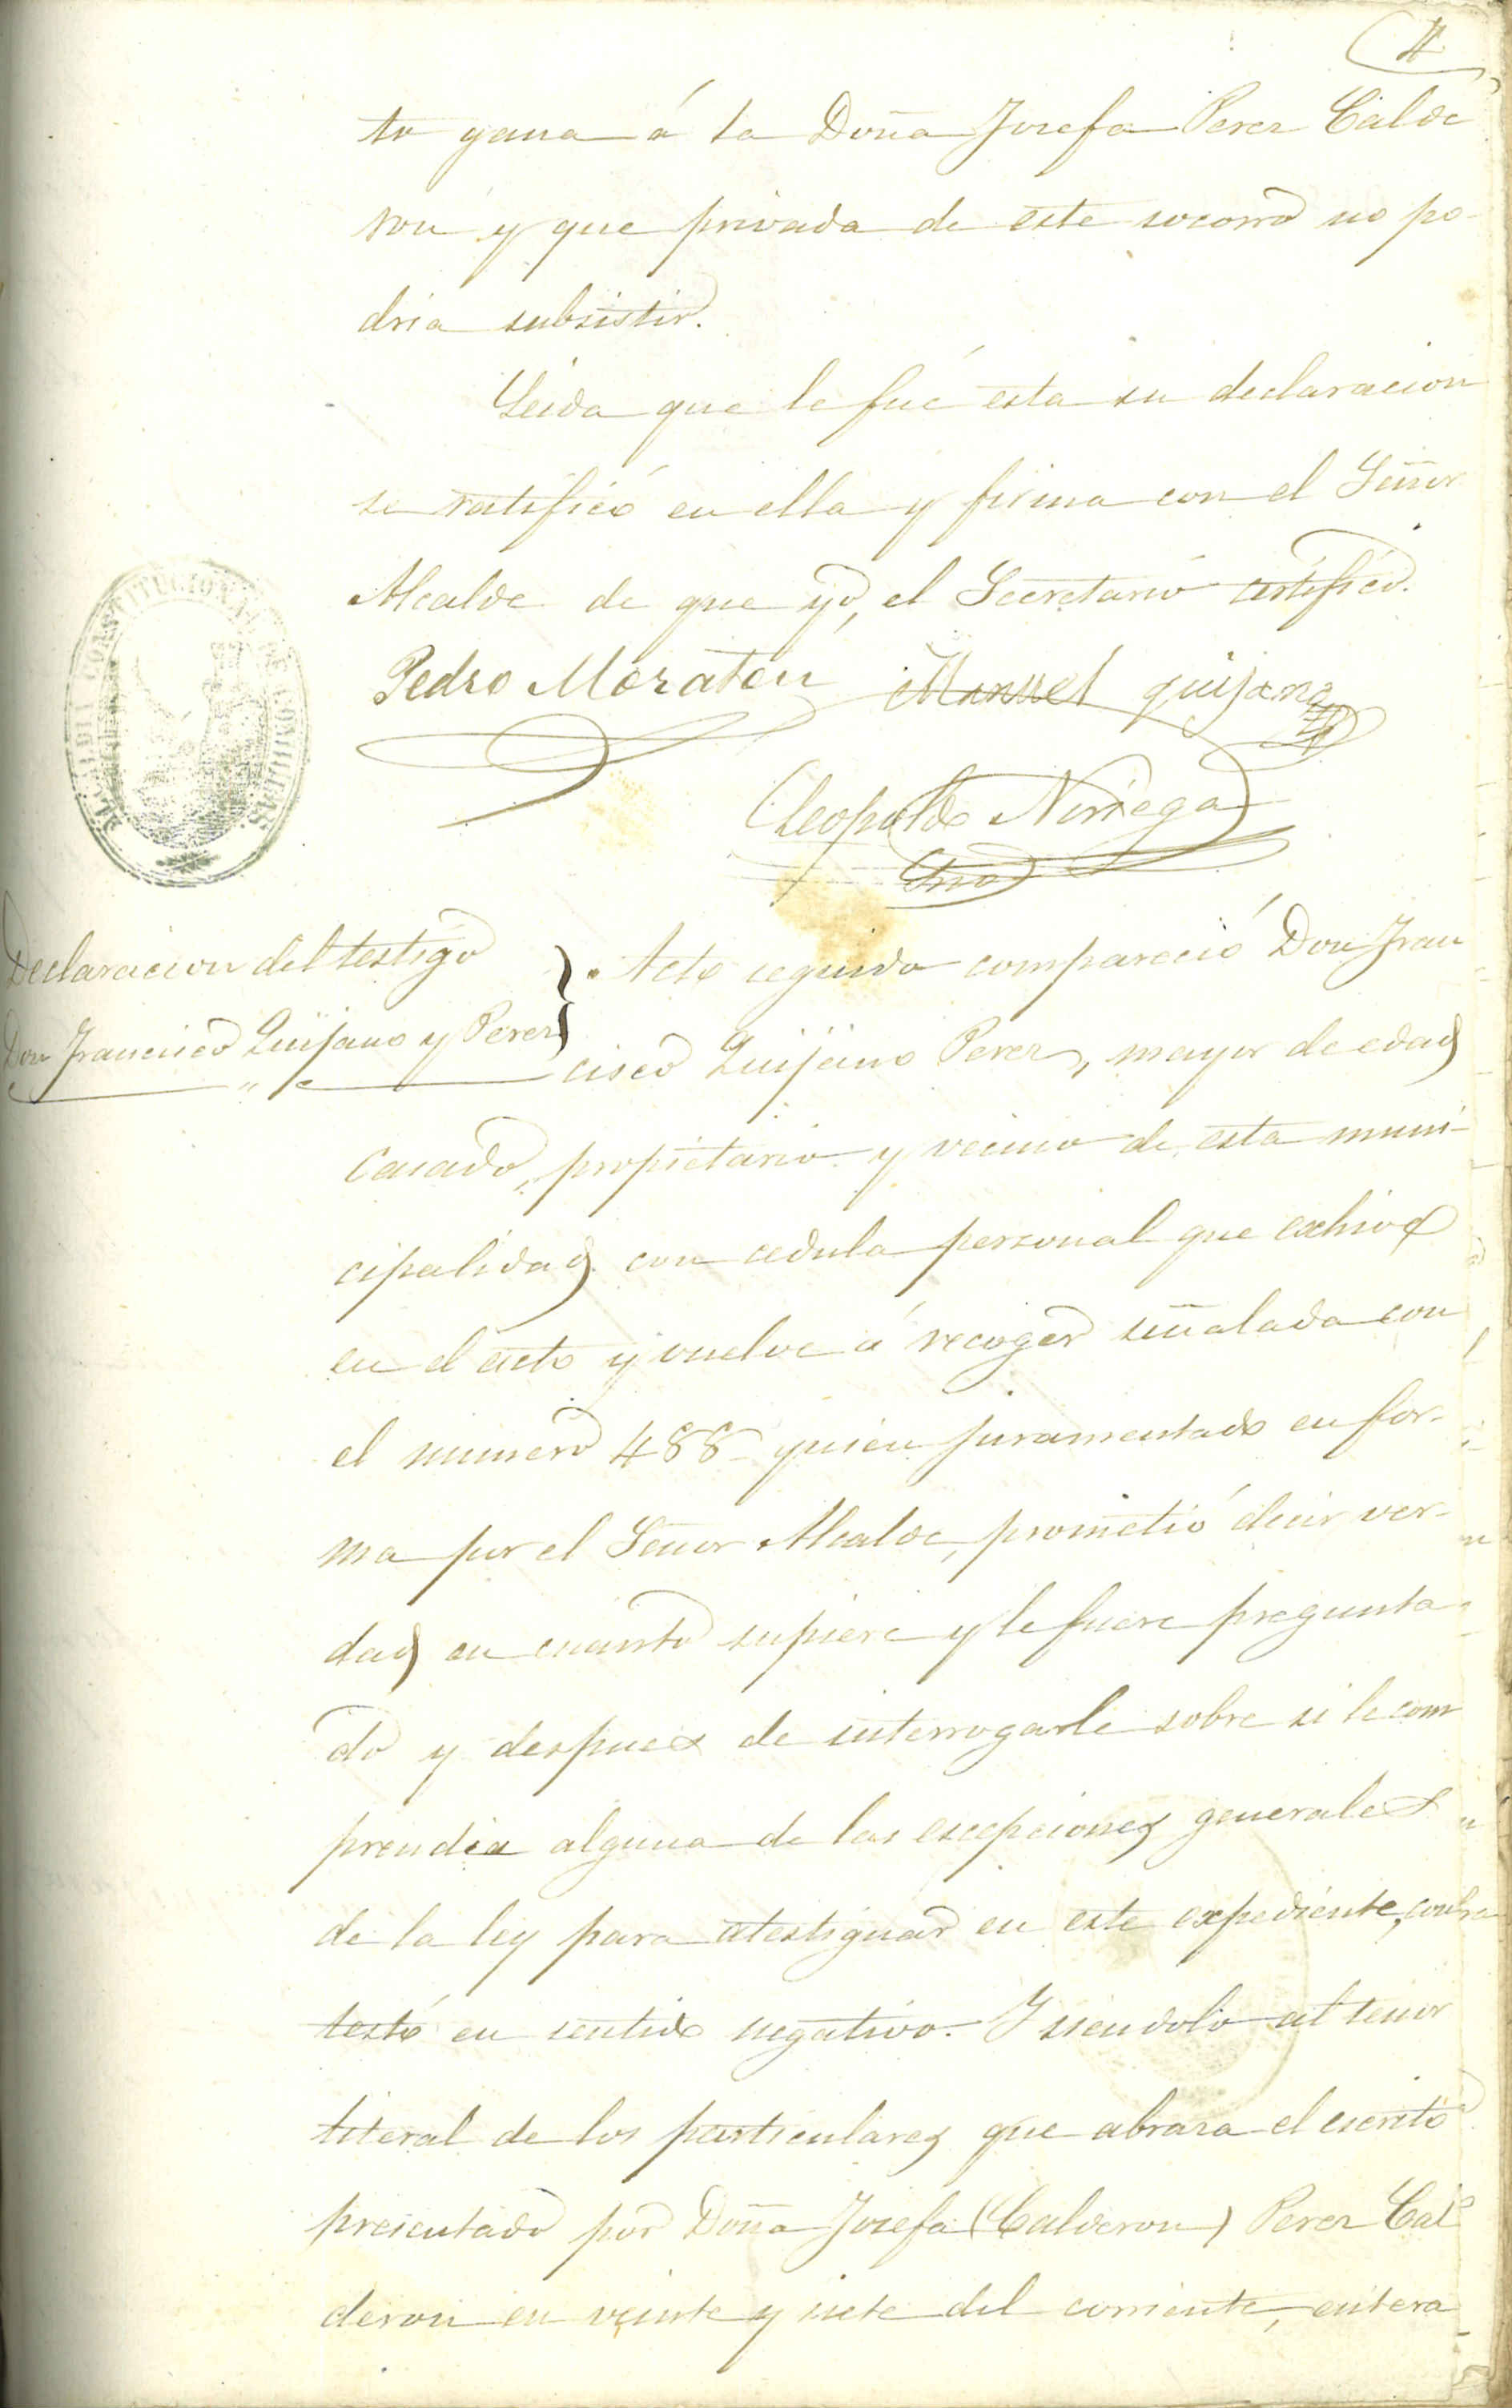 4
to gana á la Doña Josefa Perez Calde
ron y que privada de este socorro no po-
dria subsistir.
Leida que le fué esta su declaracion
se ratificó en ella y firma con el Señor
Alcalde de que yo, el Secretario certifico.
Pedro Moraton Manuel quijano
Leopoldo Noriega
Srio
ALCALDIA CONSTITUCIONAL DE COMILLAS.
Declaracion del testigo
Don Francisco Quijano y Perez
Acto seguido compareció Don Fran
cisco Quijano Perez, mayor de edad
casado, propietario y vecino de esta muni-
cipalidad con cedula personal que exhive
en el acto y vuelve á recoger señalada con
el numero 488 quien juramentado en for-
ma por el Señor Alcalde, prometió decir ver-
dad en cuanto supiere y le fuere pregunta-
do y despues de interrogarle sobre si le com
prendia alguna de las escepciones generales
de la ley para atestiguar en este expediente, con
testó en sentido negativo. Y siendolo al tenor
literal de los particulares que abraza el escrito
presentado por Doña Josefa (Calderon) Perez Cal
deron en veinte y siete del corriente, entera